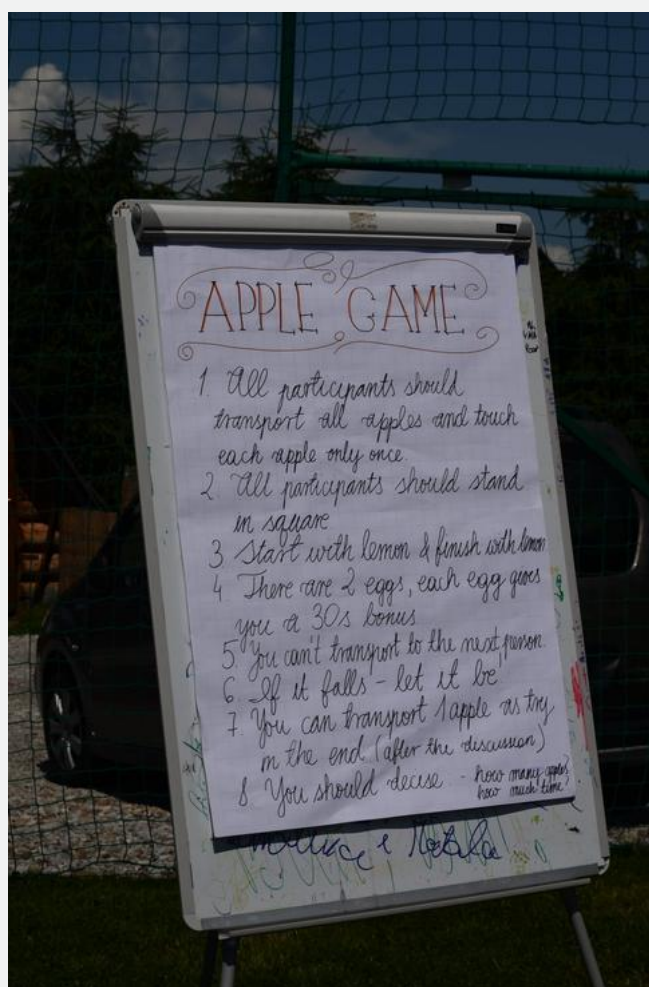 APPLE GAME
1. All participants should
transport all apples and touch
each apple only once.
2. All participants should stand
in square
3. Start with lemon & finish with lemon
4 There are 2 eggs, each egg gives
you a 30s bonus
5. You can't transport to the next person.
6. If it falls - let it be
7. You can transport 1 apple as try
in the end (after the discussion)
8. You should decise - how many apples
how much time